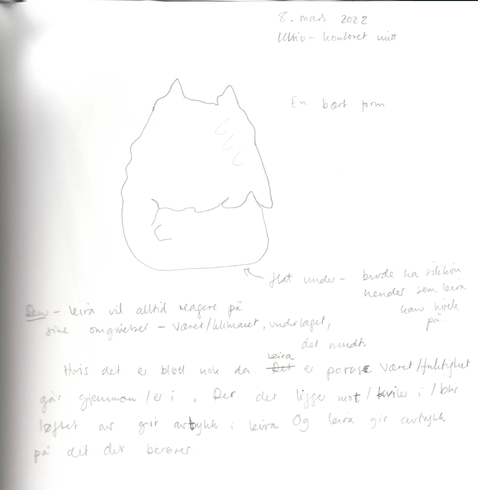 8. mars 2022
KHiO - kontoret mitt
En bært form
flat under - burde ha silikon
hender som leira
kan hvile
på.
Den - leira vil alltid reagere på
sine omgivelser - været/klimaet, underlaget,
det rundt.
Hvis det er bløtt nok da leira er porøs været/fuktighet
går gjennom/er i. Der det ligger mot/hviler i/blir
løftet av gir avtrykk i leira Og leira gir avtrykk
på det det berører